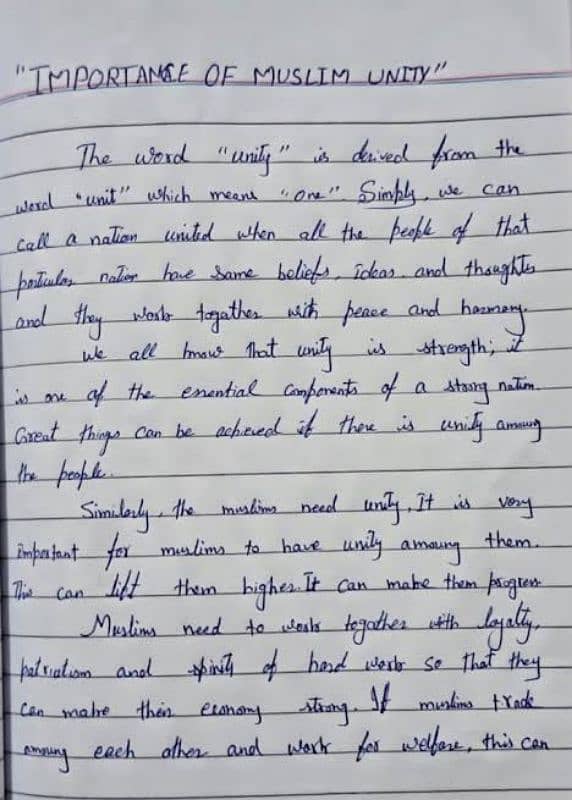 "IMPORTANCE OF MUSLIM UNITY"
The word "unity" is derived from the
word "unit" which means "one". Simply, we can
call a nation united when all the people of that
particular nation have same beliefs, ideas and thoughts
and they work togather with peace and harmony.
We all know that unity is strength; it
is one of the essential components of a strong nation.
Great things can be achieved if there is unity amoung
the people.
Similarly, the muslims need unity, It is very
important for muslims to have unity amoung them.
This can lift them higher. It can make them progress
Muslims need to work togather with loyalty,
patriatism and spirity of hard work so that they
can make their economy strong. If muslims trade
amoung each other and work for welfare, this can